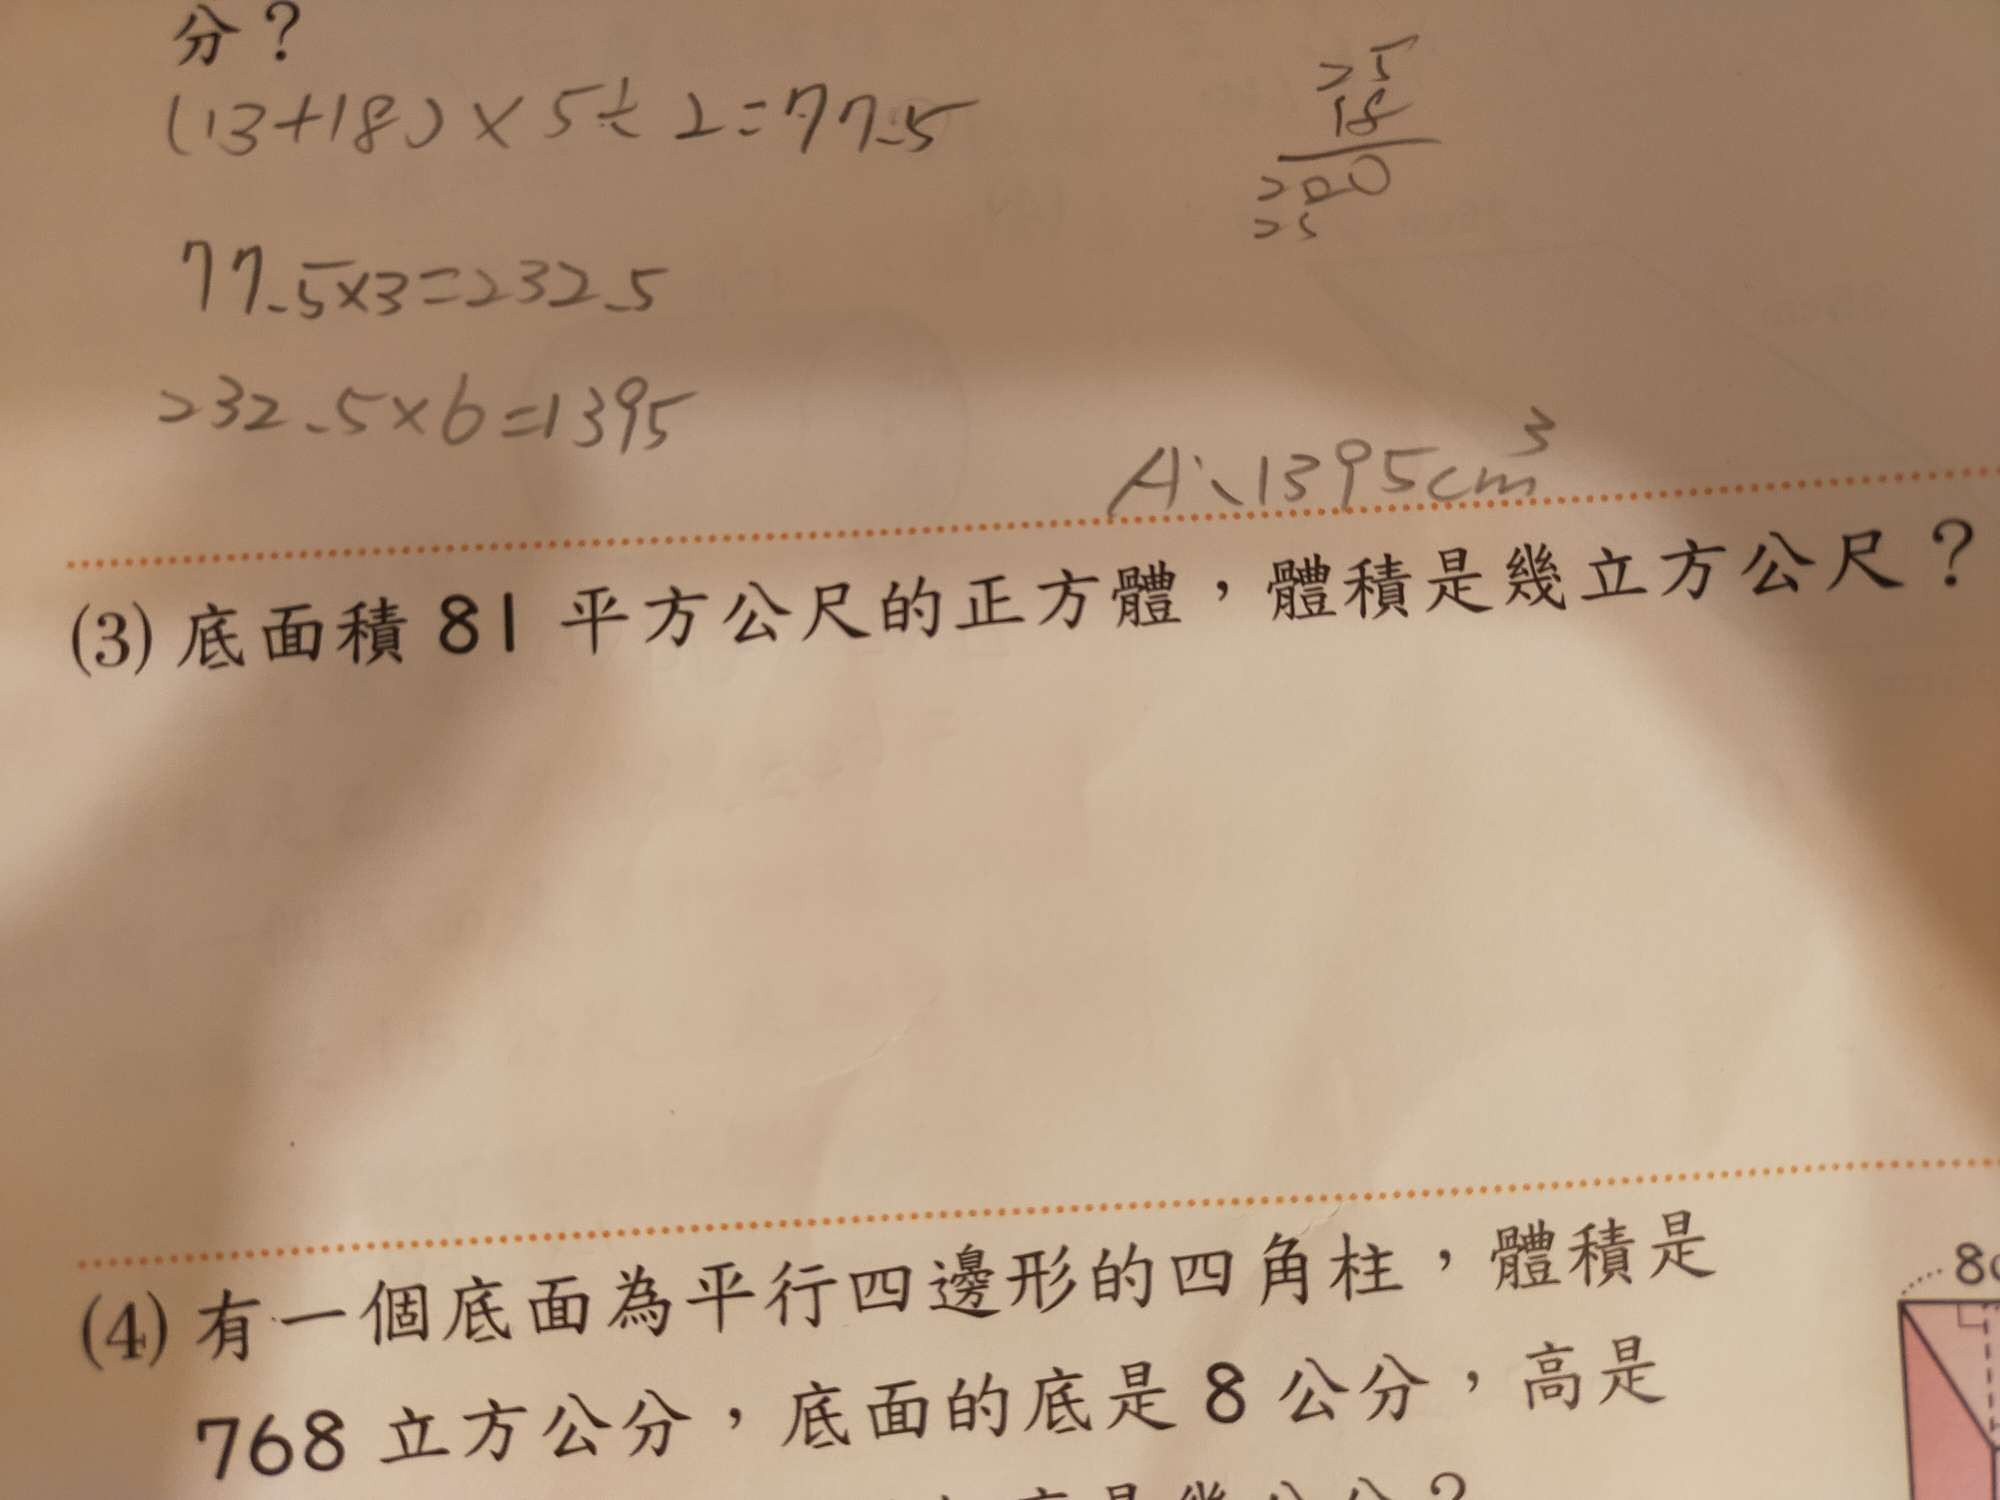 分？
(13+18)×5÷2=77.5
25
18
200
25
77.5×3=232.5
232.5×6=1395
A、1395cm³
(3) 底面積 81 平方公尺的正方體，體積是幾立方公尺？
(4) 有一個底面為平行四邊形的四角柱，體積是
8c
768 立方公分，底面的底是 8 公分，高是
是幾公分？